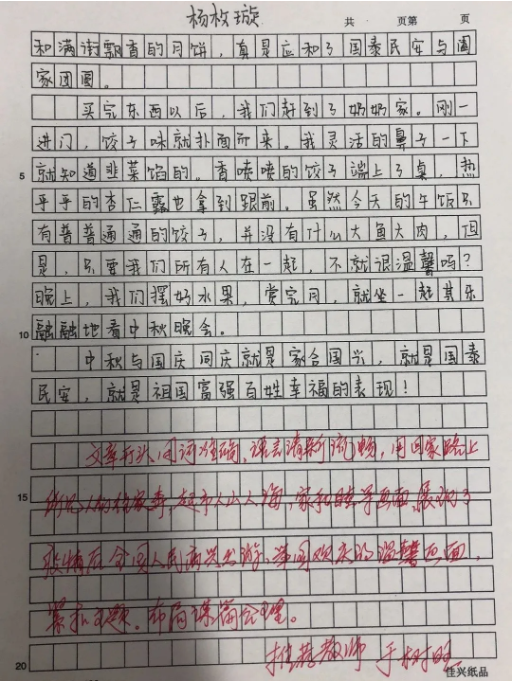 杨枚璇
共 页第 页
和满街飘香的月饼，真是应和了国泰民安与阖
家团圆。
买完东西以后，我们赶到了奶奶家。刚一
进门，饺子味就扑面而来。我灵活的鼻子一下
5
就知道韭菜馅的。香喷喷的饺子端上了桌，热
乎乎的杏仁露也拿到跟前。虽然今天的午饭只
有普普通通的饺子，并没有什么大鱼大肉，但
是，只要我们所有人在一起，不就很温馨吗？
晚上，我们摆好水果，赏完月，就坐一起其乐
10
融融地看中秋晚会。
中秋与国庆同庆就是家合国兴，就是国泰
民安，就是祖国富强百姓幸福的表现！
文章开头，用词准确，语言清新流畅，用回家路上
15
所见人的 超市人山人海，家和 画面，展现了
疫情后全国人民高兴出游，举国欢庆的温馨画面，
紧扣主题。布局谋篇合理。
推荐教师 于树
20
佳兴纸品